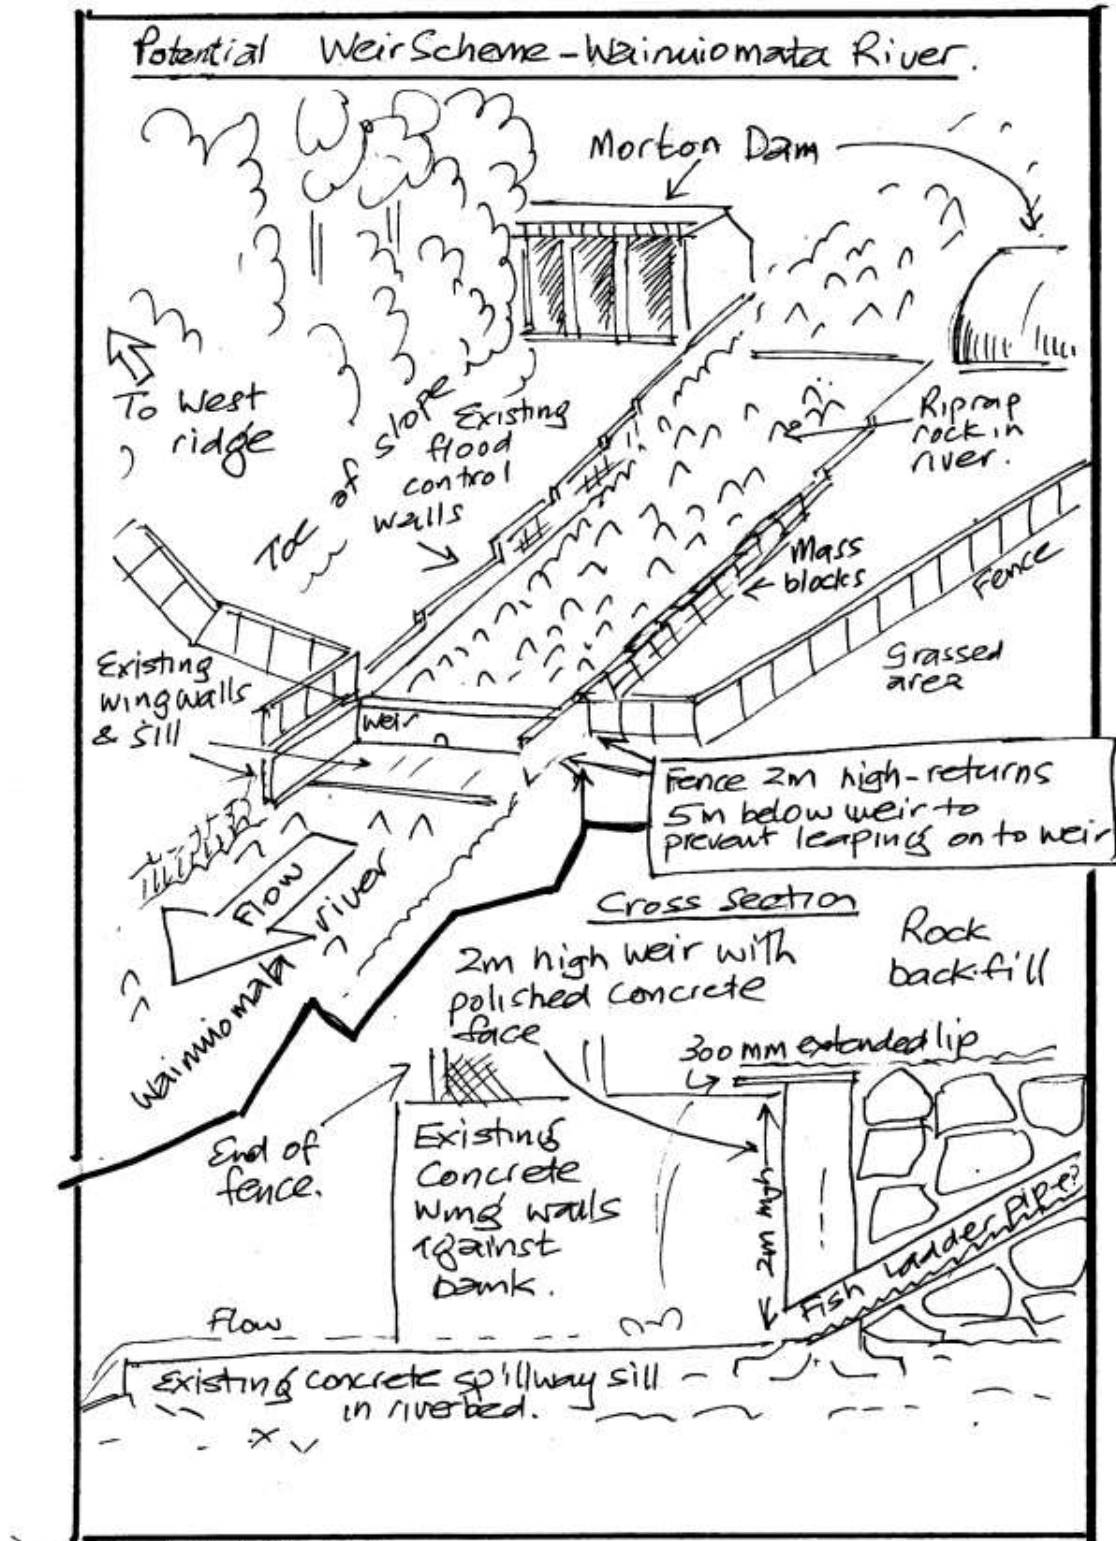 Potential Weir Scheme - Wainuiomata River.
Morton Dam
To West
ridge
Toe of slope
Existing
flood
control
walls
Riprap
rock in
river.
Mass
blocks
Fence
Grassed
area
Existing
wingwalls
& sill
Weir
Fence 2m high - returns
5m below weir to
prevent leaping on to weir
Flow
Wainuiomata river
Cross Section
2m high weir with
polished concrete
face
Rock
backfill
300 mm extended lip
End of
fence.
Existing
Concrete
wing walls
against
bank.
2m high
Fish Ladder Pipe?
Flow
Existing concrete spillway sill
in riverbed.